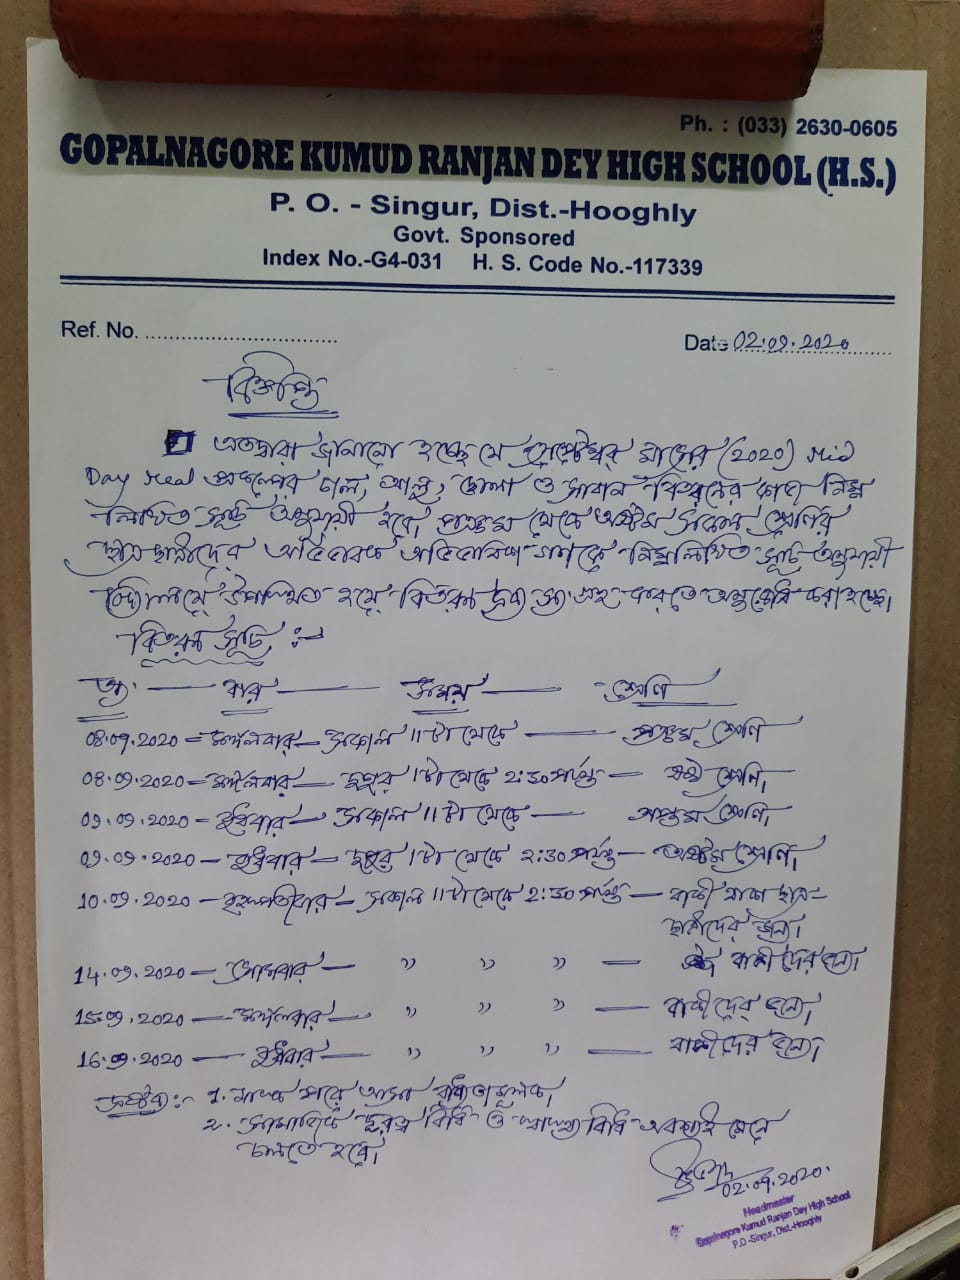 Ph. : (033) 2630-0605
GOPALNAGORE KUMUD RANJAN DEY HIGH SCHOOL (H.S.)
P. O. - Singur, Dist.-Hooghly
Govt. Sponsored
Index No.-G4-031 H. S. Code No.-117339
Ref. No. ................................
Date 02.09.2020
বিজ্ঞপ্তি
এতদ্বারা জানানো হচ্ছে যে সেপ্টেম্বর মাসের (2020) Mid
Day Meal প্রকল্পের চাল, আলু, ছোলা ও সাবান বিতরনের কাজ নিম্ন
লিখিত সূচি অনুযায়ী হবে। পঞ্চম থেকে অষ্টম সকল শ্রেণির
ছাত্র ছাত্রীদের অভিভাবক অভিভাবিকা গণকে নিম্নলিখিত সূচি অনুযায়ী
বিদ্যালয়ে উপস্থিত হয়ে বিতরন দ্রব্য সংগ্রহ করতে অনুরোধ করা হচ্ছে।
বিতরন সূচি :-
তাং — বার — সময় — শ্রেণি
08.09.2020 = মঙ্গলবার — সকাল 11 টা থেকে — পঞ্চম শ্রেণি
08.09.2020 = মঙ্গলবার — দুপুর 1টা থেকে 2:30 পর্যন্ত — ষষ্ঠ শ্রেণি,
09.09.2020 - বুধবার — সকাল 11 টা থেকে — সপ্তম শ্রেণি,
09.09.2020 — বুধবার — দুপুর 1টা থেকে 2:30 পর্যন্ত — অষ্টম শ্রেণি,
10.09.2020 — বৃহস্পতিবার — সকাল 11টা থেকে 2:30 পর্যন্ত — বাকী থাকা ছাত্র-
ছাত্রীদের জন্য।
14.09.2020 — সোমবার — " " " — বাকীদের জন্য,
15.09.2020 — মঙ্গলবার — " " " — বাকীদের জন্য,
16.09.2020 — বুধবার — " " " — বাকীদের জন্য,
দ্রষ্টব্য:- ১. মাস্ক পরে আসা বাধ্যতামূলক,
২. সামাজিক দূরত্ব বিধি ও স্বাস্থ্য বিধি অবশ্যই মেনে
চলতে হবে।
02.09.2020.
Headmaster
Gopalnagore Kumud Ranjan Dey High School
P.O -Singur, Dist.-Hooghly